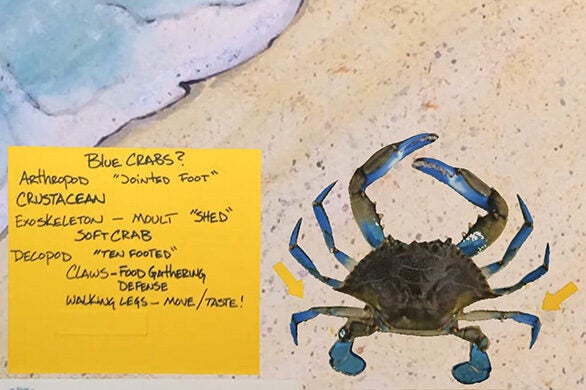 BLUE CRABS?
ARTHROPOD "JOINTED FOOT"
CRUSTACEAN
EXOSKELETON – MOULT "SHED"
SOFT CRAB
DECOPOD "TEN FOOTED"
CLAWS – FOOD GATHERING
DEFENSE
WALKING LEGS – MOVE/TASTE!